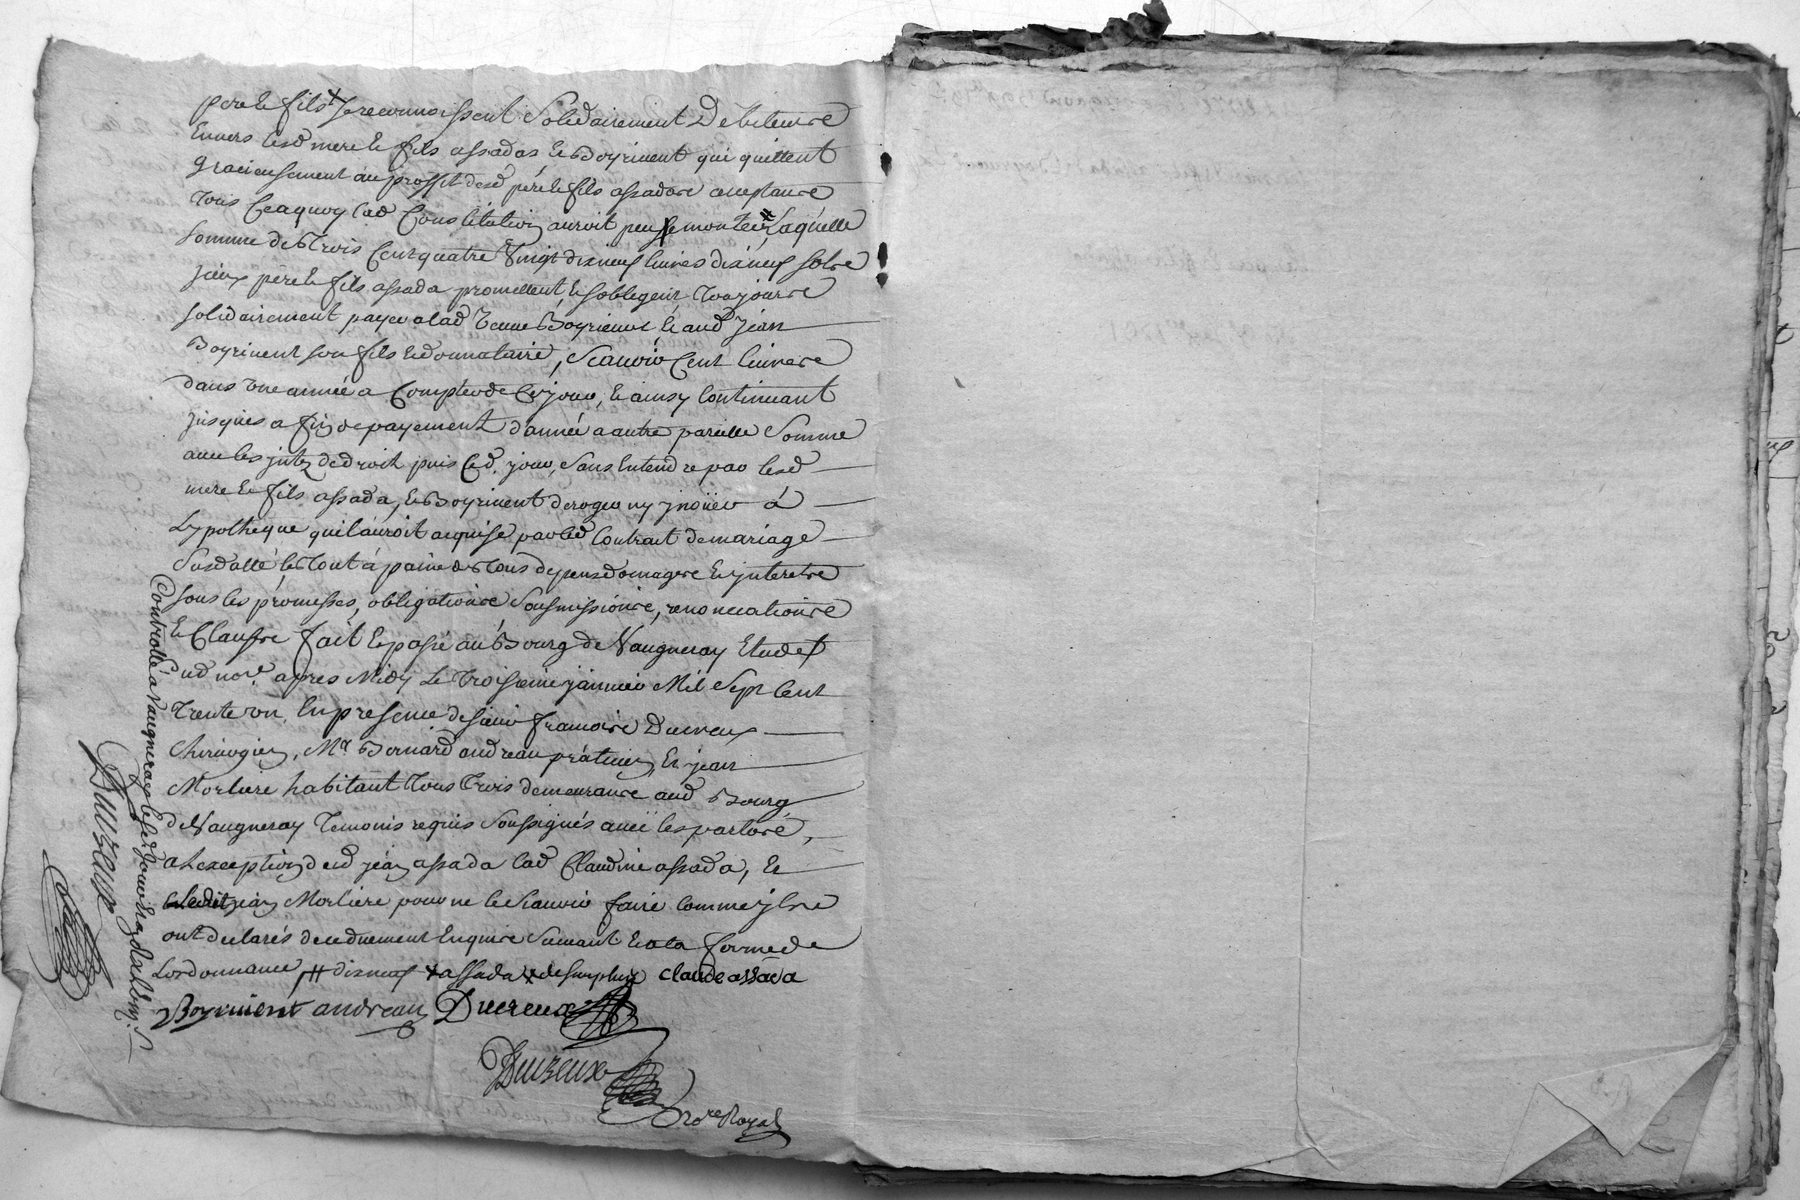 pere le fils + se reconnoissent solidairement Debiteurs
Envers lesd mere le fils assadas le Boyrivent qui quittent
gracieusement au proffit desd pére le fils assadare
tous Ceaquoy lad Constitution auroit peu se monter # Laquelle
somme de trois Cent quatre Vingt dix neuf livres dix neuf sols
jceux pére le fils assada promettent, le soblegent toujours
solidairement payer a lad veuve Boyrivent le aud jean
Boyrivent son fils le donnataire, scauoir Cent livres
dans une année a Compter de Ce jour, le ainsy Continuant
jusques a fin de payement d'année a autre pareille Somme
auec les jnts de droit puis Ced. jour, Sans Entendre par lesd
mere le fils assada, le Boyrivent deroger ny jnover á
Lypotheque quil auroit acquise par led Contract de mariage
le tout á paine de tous depens domages le jnterets
sous les promesses, obligations Sousmissions, renonciations
le Clauses fait le passé au Bourg de Vaugneray Etude
ud no.re apres Midy Le troisieme janvier Mil Sept Cent
trente un, En presence de sieur francois Ducreux
chirurgien, Me Bernard andreau praticien, Et jean
Morliere habitant tous trois demeurants aud Bourg
de Vaugneray temoins requis Soussignés auec les parties,
a Lexception dud jean assada lad Claudine assada, Et
ledit jean Morliere pour ne le scauoir faire Comme jls
ont declarés de ce duement Enquis Suivant Et a la forme de
Lordonnance # dix neuf + assada + de surplus claude assada
Boyrivent andreau Ducreux
Ducreux
no.re Royal
Controllé a Vaugneray le
Ducreux